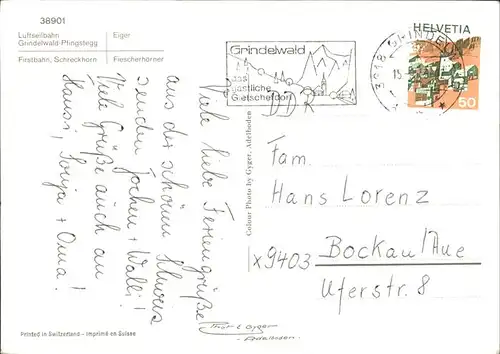 38901
Luftseilbahn
Grindelwald-Pfingstegg
Eiger
Firstbahn, Schreckhorn
Fiescherhörner
HELVETIA
50
3818 GRINDELW
15
Grindelwald
das
gastliche
Gletscherdorf
DDR
Viele liebe Feriengrüße
aus der schönen Schweiz
senden Jochen + Walli!
Viele Grüße auch an
Hansi, Sonja + Oma!
Colour Photo by Gyger, Adelboden
Fam.
Hans Lorenz
x9403 Bockau/Aue
Uferstr. 8
Printed in Switzerland - Imprimé en Suisse
Gyger
Adelboden